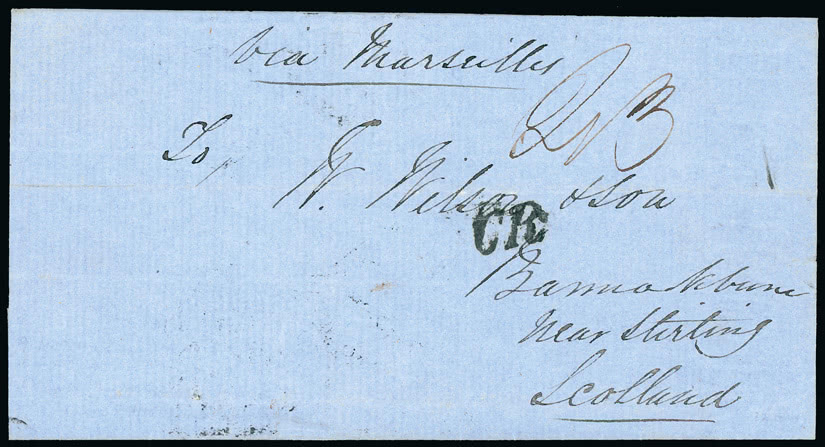 via Marseilles
2N3
To,
W. Wilson & Son
CR
Bannockburn
Near Stirling
Scotland